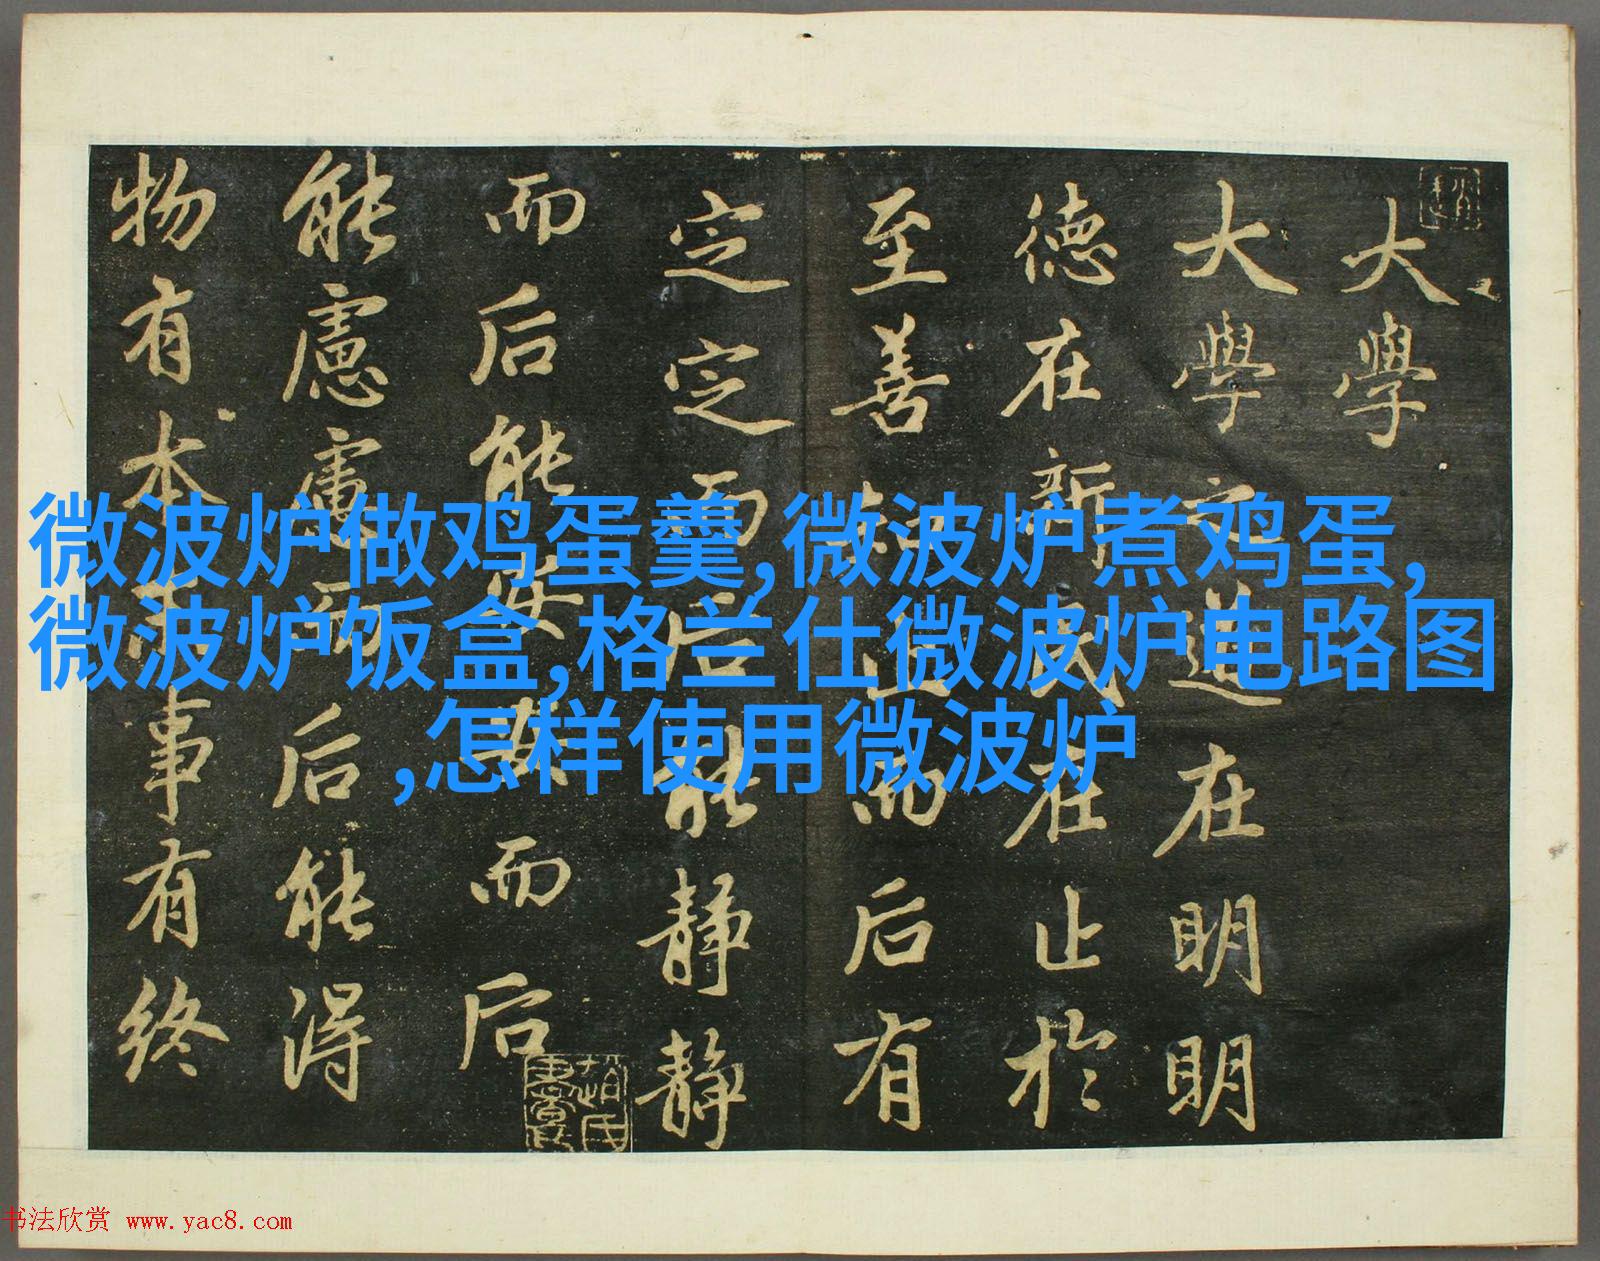 大學
大學之道在明明
德在新民在止於
至善知止而后有
定定而后能靜靜
而后能安安而后
能慮慮而后能得
物有本末事有終
微波炉做鸡蛋羹,微波炉煮鸡蛋,
微波炉饭盒,格兰仕微波炉电路图
,怎样使用微波炉
书法欣赏 www.yac8.com